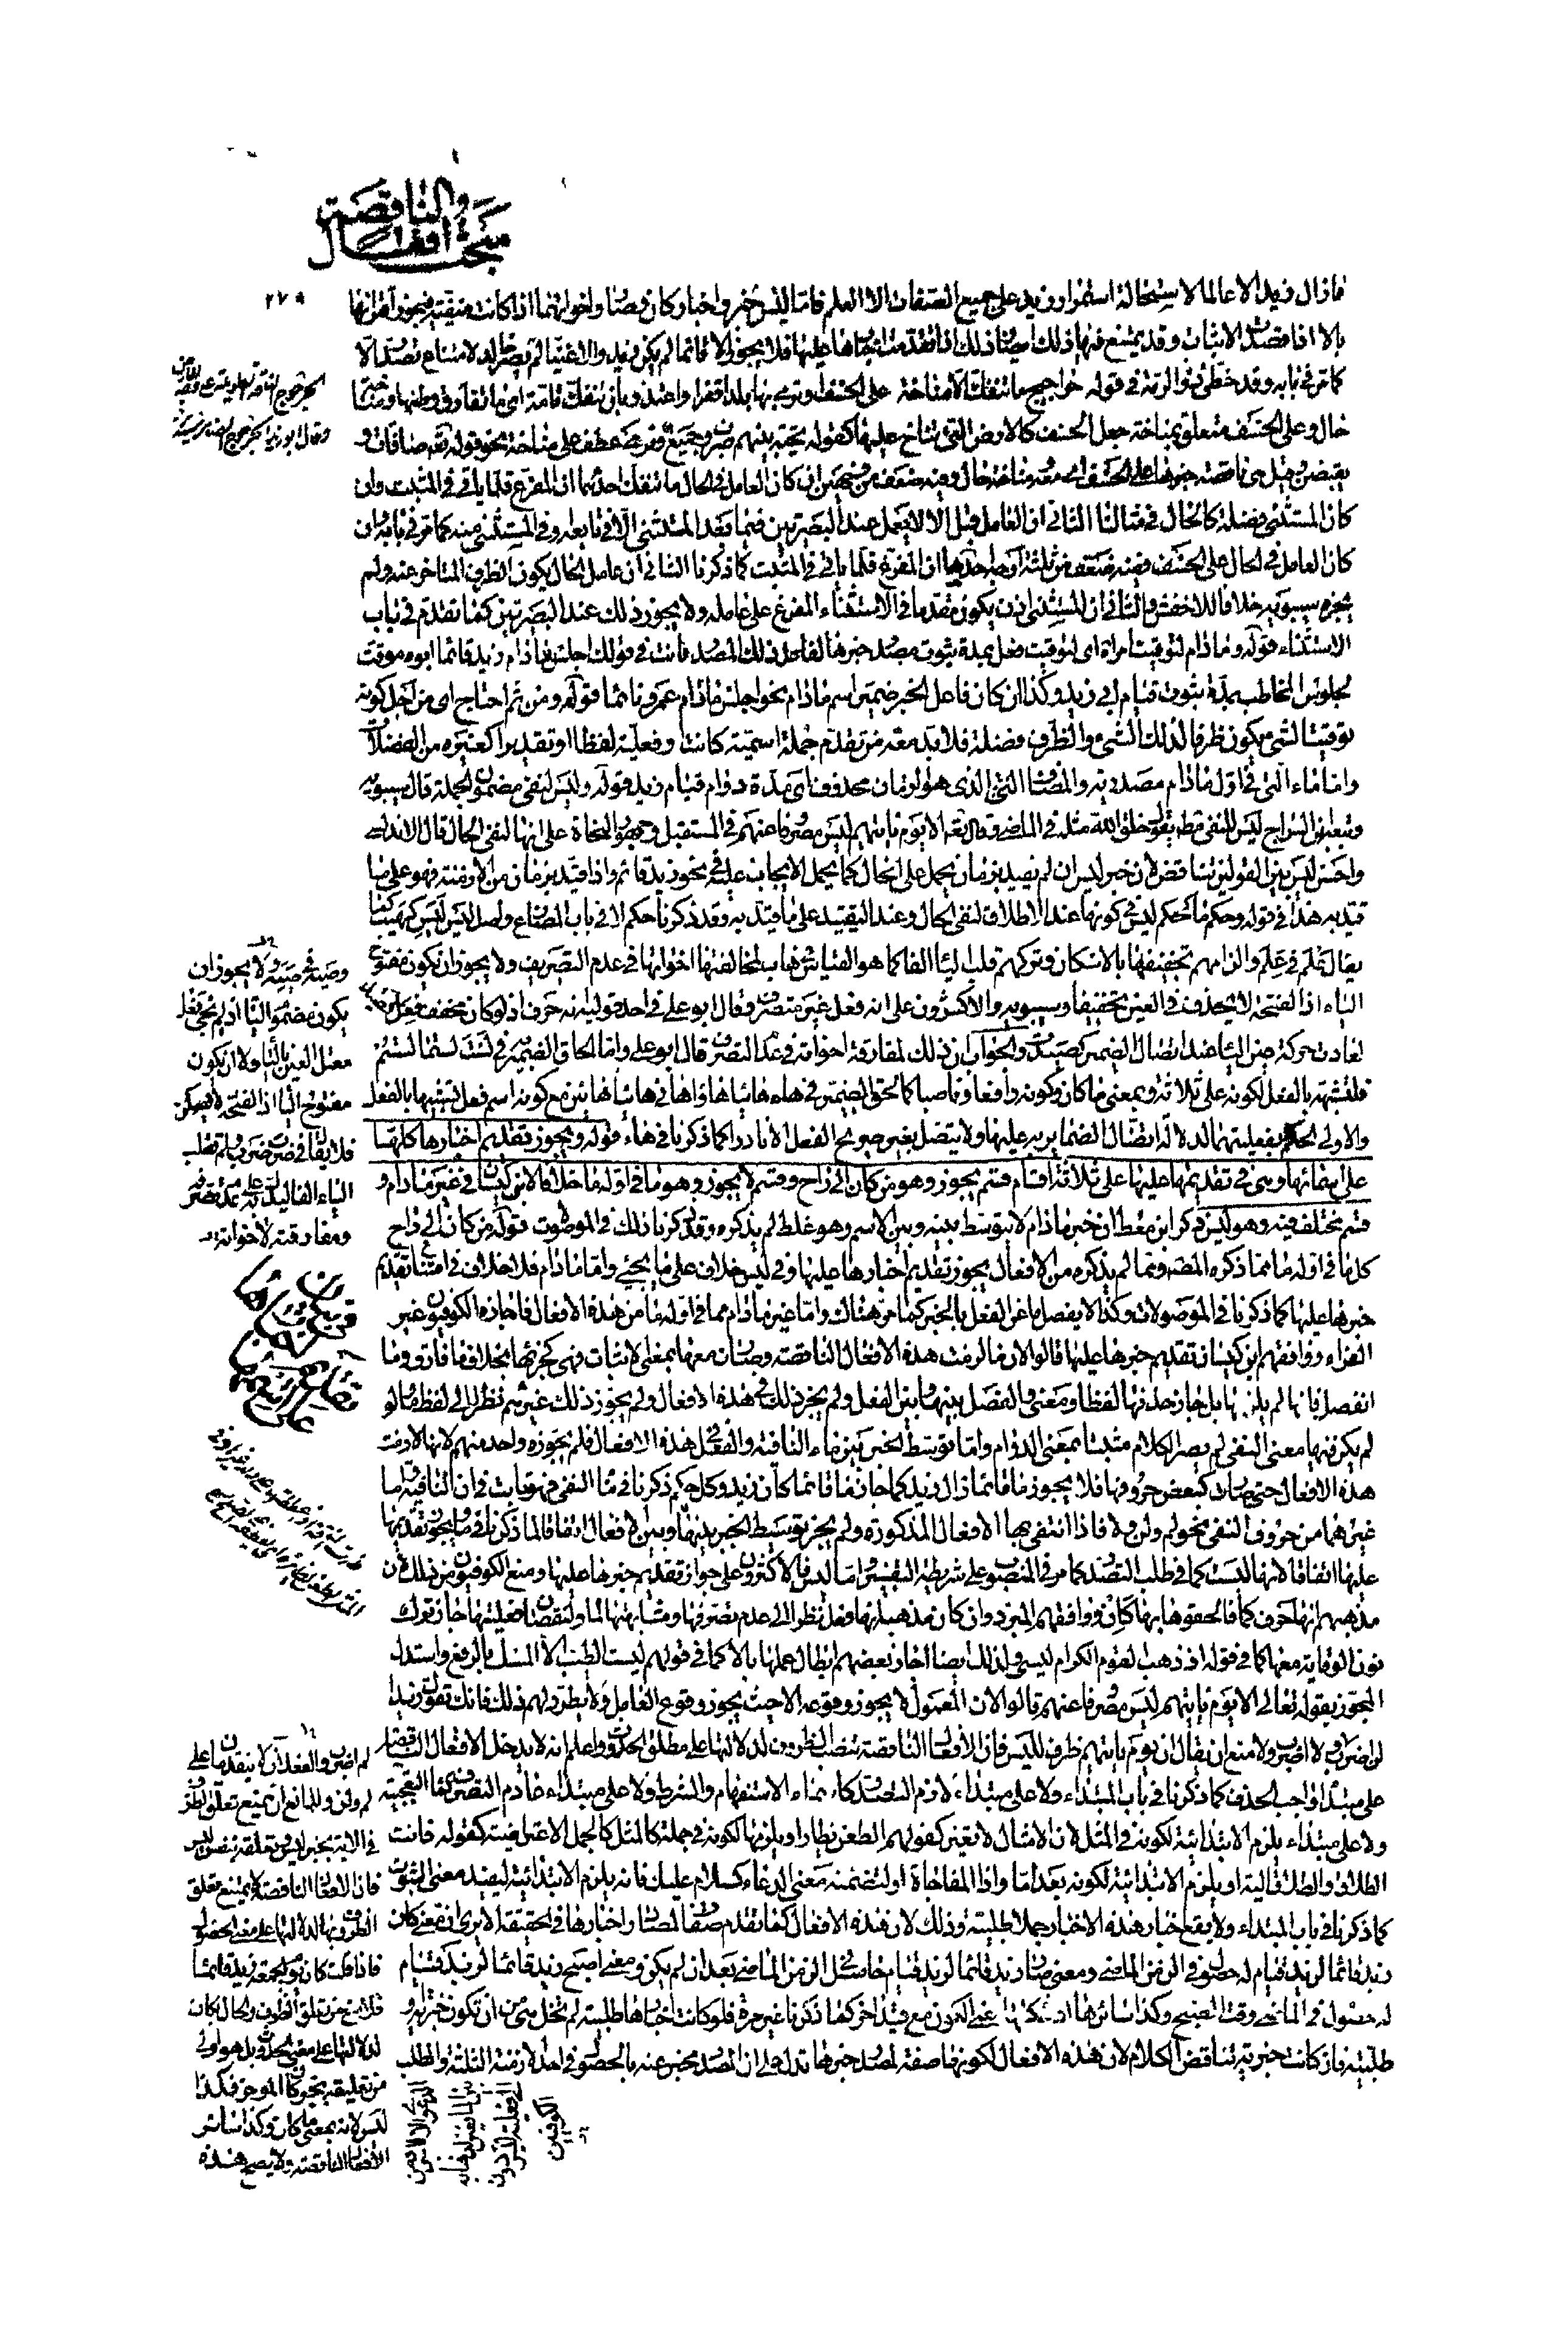 والناقصة
مبحث افعال
٢٧٩
ما زال زيد الا عالما لاستحالة استمرار زيد على جميع الصفات الا العلم فاما ليس خبر واخبار كان وصار واخواتهما اذا كانت منفية فيجوز اقترانها
بالا اذا قصدت الاثبات وقد يمتنع فيها ذلك ايضا وذلك اذا تقدمت اخبارها عليها فلا يجوز الا قائما لم يكن زيد والا غنيا لم يصر خالد لامتناع تصدر الا
كما مر في بابه وقد خطئ ذو الرمة في قوله حراجيج ما تنفك الا مناخة على الخسف او نرمي بها بلدا قفرا واعتذر بان تنفك تامة اي ما تفارق وطنها ومناخة
حال وعلى الخسف متعلق بمناخة جعل الخسف كالارض التي تناخ عليها كقوله تحية بينهم ضرب وجيع ونرمي عطف على مناخة نحو قوله تعالى صافات و
يقبضن وقيل هي ناقصة خبرها على الخسف اي معه ومناخة حال وفيه ضعف من وجهين ان كان العامل في الحال ما تنفك احدهما ان المفرغ قلما ياتي في المثبت وان
كان المستثنى فضلة كالحال في مثالنا الثاني ان العامل قبل الا لا يعمل عند البصريين فيما بعد المستثنى الا في تابعه وفي المستثنى منه كما مر في بابه وان
كان العامل في الحال على الخسف ففيه ضعف من ثلثة اوجه احدها ان المفرغ قلما ياتي في المثبت كما ذكرنا الثاني ان عامل الحال يكون الظرف المتاخر عنه ولم
يجزه سيبويه خلافا للاخفش والثالث ان المستثنى اذن يكون مقدما في الاستثناء المفرغ على عامله ولا يجوز ذلك عند البصريين كما تقدم في باب
الاستثناء قوله وما دام لتوقيت امر اي لتوقيت فعل بمدة ثبوت مصدر خبرها لفاعل ذلك المصدر فانت في قولك اجلس ما دام زيد قائما ابوه موقت
لجلوس المخاطب بمدة ثبوت قيام ابي زيد وكذا ان كان فاعل الخبر ضمير اسم ما دام نحو اجلس ما دام عمرو نائما قوله ومن ثم احتاج اي من اجل كونه
توقيتا لشيء يكون ظرفا لذلك الشيء والظرف فضلة فلا بد معه من تقدم جملة اسمية كانت او فعلية لفظا او تقديرا كغيره من الفضلات
واما ما التي في اول ما دام مصدرية والمضاف اليه الذي هو الزمان محذوف اي مدة دوام قيام زيد قوله وليس لنفي مضمون الجملة قال سيبويه
وتبعه ابن السراج ليس للنفي مطلقا يقول خلق الله مثله في الماضي وقال تعالى الا يوم ياتيهم ليس مصروفا عنهم في المستقبل وجمهور النحاة على انها لنفي الحال قال الاندلسي
واحسن ليس بين القولين تناقض لان خبر ليس ان لم يقيد بزمان يحمل على الحال كما يحمل الايجاب عليه في نحو زيد قائم واذا قيد بزمان من الازمنة فهو على ما
قيد به هذا في قوله وحكم ما كحكم ليس في كونها عند الاطلاق لنفي الحال وعند التقييد على ما قيد به وقد ذكرنا حكم لا في باب المضارع واصل ليس ليس كهيب كما
يقال علم في علم والزامهم تخفيفها بالاسكان وتركهم قلب الياء الفا كما هو القياس في هاب لمخالفتها اخواتها في عدم التصريف ولا يجوز ان يكون مفتوح
الياء اذ الفتحة لا تحذف في العين تخفيفا وسيبويه والاكثرون على انه فعل غير متصرف وقال ابو علي في احد قوليه انه حرف اذ لو كان مخفف فعل
لعادت حركة عين الياء عند اتصال الضمير كصيدت والجواب ان ذلك لمفارقة اخواته في عدم التصرف قال ابو علي واما الحاق الضمير في لست لستما لستم
فلشبهه بالفعل لكونه على ثلاثة وبمعنى ما كان وكونه رافعا وناصبا كما لحق الضمير في هاء هائيا هاؤا هائي هائيا هائين مع كونه اسم فعل تشبيها بالفعل
والاولى الحكم بفعليتها لدلالة اتصال الضمائر به عليها ولا يتصل بغير صريح الفعل الا نادرا كما ذكرنا في هاء قوله ويجوز تقديم اخبارها كلها
على اسمائها وهي في تقديمها عليها على ثلاثة اقسام قسم يجوز وهو من كان الى راح وقسم لا يجوز وهو ما في اوله ما خلافا لابن كيسان في غير ما دام و
قسم مختلف فيه وهو ليس ذكر ابن معط ان خبر ما دام لا يتوسط بينه وبين الاسم وهو غلط لم يذكره وقد ذكرنا ذلك في الموصولات قوله من كان الى راح
كل ما في اوله ما مما ذكره المصنف ومما لم يذكره من الافعال يجوز تقديم اخبارها عليها وفي ليس خلاف على ما يجيء واما ما دام فلا خلاف في امتناع تقديم
خبرها عليها كما ذكرنا في الموصولات وكذا لا يفصل ما عن الفعل بالخبر كما مر هناك واما غير ما دام مما في اوله ما من هذه الافعال فاجازه الكوفيون غير
الفراء ووافقهم ابن كيسان تقديم خبرها عليها قالوا لان ما لزمت هذه الافعال الناقصة وصارت معها بمعنى الاثبات فهي كجزئها بخلاف ما فارق وما
انفصل فانها لم يلزمها بل جاز حذفها لفظا ومعنى والفصل بينها وبين الفعل ولم يجز ذلك في هذه الافعال ولم يجوز ذلك غيرهم نظرا الى لفظ ما لو
لم يكن فيها معنى النفي لم يصر الكلام مثبتا بمعنى الدوام واما توسط الخبر بين ما النافية والفعل في هذه الافعال فلم يجوزه واحد منهم لانها لازمت
هذه الافعال حتى صارت كبعض حروفها فلا يجوز ما قائما زال زيد كما جاز ما قائما كان زيد وكل حكم ذكرنا في ما النفي فهو ثابت في ان النافية واما
غيرهما من حروف النفي نحو لم ولن ولا فاذا انتفى بها الافعال المذكورة ولم يجز توسيط الخبر بينها وبين الافعال اتفاقا لما ذكرنا في ما ويجوز تقديمها
عليها اتفاقا لانها ليست كما في طلب التصدر كما مر في المنصوب على شريطة التفسير واما ليس فالاكثرون على جواز تقديم خبرها عليها ومنع الكوفيون من ذلك لان
مذهبهم انها حرف كما فالحقوها بها ووافقهم المبرد وان كان مذهبه انها فعل نظرا الى عدم تصرفها ومشابهتها لما ولنقصان فعليتها جاز ترك
نون الوقاية معها كما في قوله اذ ذهب القوم الكرام ليسي ولذلك ايضا اجاز بعضهم ابطال عملها بالا كما في قولهم ليس الطيب الا المسك بالرفع واستدل
المجوز بقوله تعالى الا يوم ياتيهم ليس مصروفا عنهم قالوا لان المعمول لا يجوز وقوعه الا حيث يجوز وقوع العامل ولا يطرد لهم ذلك فانك تقول زيدا
لن اضرب ولا اضرب ولا منع ان يقال ان يوم ياتيهم ظرف لليس فان الافعال الناقصة تنصب الظروف لدلالتها على مطلق الحدث واعلم انه لا يدخل الافعال الناقصة
على مبتدا واجب الحذف كما ذكرنا في باب المبتداء ولا على مبتداء لازم التصدر كاسماء الاستفهام والشرط ولا على مبتداء عادم التصرف كما التعجبية
ولا على مبتداء يلزم الابتدائية لكونه في المثل لان الامثال لا تغير كقولهم الطعن يظار او يلزمها لكونه في جملة كالمثل كالجمل الاعتراضية كقوله فانت
الطلاق والطلاق الية او يلزم الابتدائية لكونه بعد اما واذا المفاجاة او لتضمنه معنى الدعاء كسلام عليك فانه يلزم الابتدائية ليفيد معنى الثبوت
كما ذكرنا في باب المبتداء ولا يقع اخبار هذه الاخبار جملا طلبية وذلك لان هذه الافعال كما تقدم صفات لمصادر اخبارها في الحقيقة الا يرى ان معنى كان
زيد قائما لزيد قيام له حصول في الزمن الماضي ومعنى صار زيد قائما لزيد قيام حاصل في الزمن الماضي بعد ان لم يكن ومعنى اصبح زيد قائما لزيد قيام
له حصول في الماضي وقت الصبح وكذا سائرها اذ في كلها معنى الكون مع قيد اخر كما ذكرنا غير مرة فلو كانت اخبارها طلبية لم تخل هي من ان تكون خبرية او
طلبية فان كانت خبرية تناقض الكلام لان هذه الافعال لكونها صفة لمصدر خبرها تدل على ان المصدر مخبر عنه بالحصول في احد الازمنة الثلثة والطلب
وصيد في صيد ولا يجوز ان
يكون مضموم الياء اذ لم يجئ فعل
معتل العين بالياء ولا ان يكون
مفتوح الياء اذ الفتحة لا تسكن
فلا يقال في ضرب ضرب ولم تقلب
الياء الفا ليدل على عدم تصرفه
ومفارقته لاخواته
لم اضرب والفعل لا يتقدم على
لم ولن وللمانع ان يمنع تعلق الظرف
في الاية بخبر ليس وتعلقه بنفس ليس
فان الافعال الناقصة لا يمتنع تعلق
الظروف بها لدلالتها على معنى الحصول
فاذا قلت كان يوم الجمعة زيد قائما
فلا تمنع من تعلق الظرف والحال بكان
لدلالتها على معنى الحدث بل هو اولى
من تعليقه بنحو كاف الموجز فكذا
ليس لانه بمعنى ما كان وكذا سائر
الافعال الناقصة ولا يصح هذه